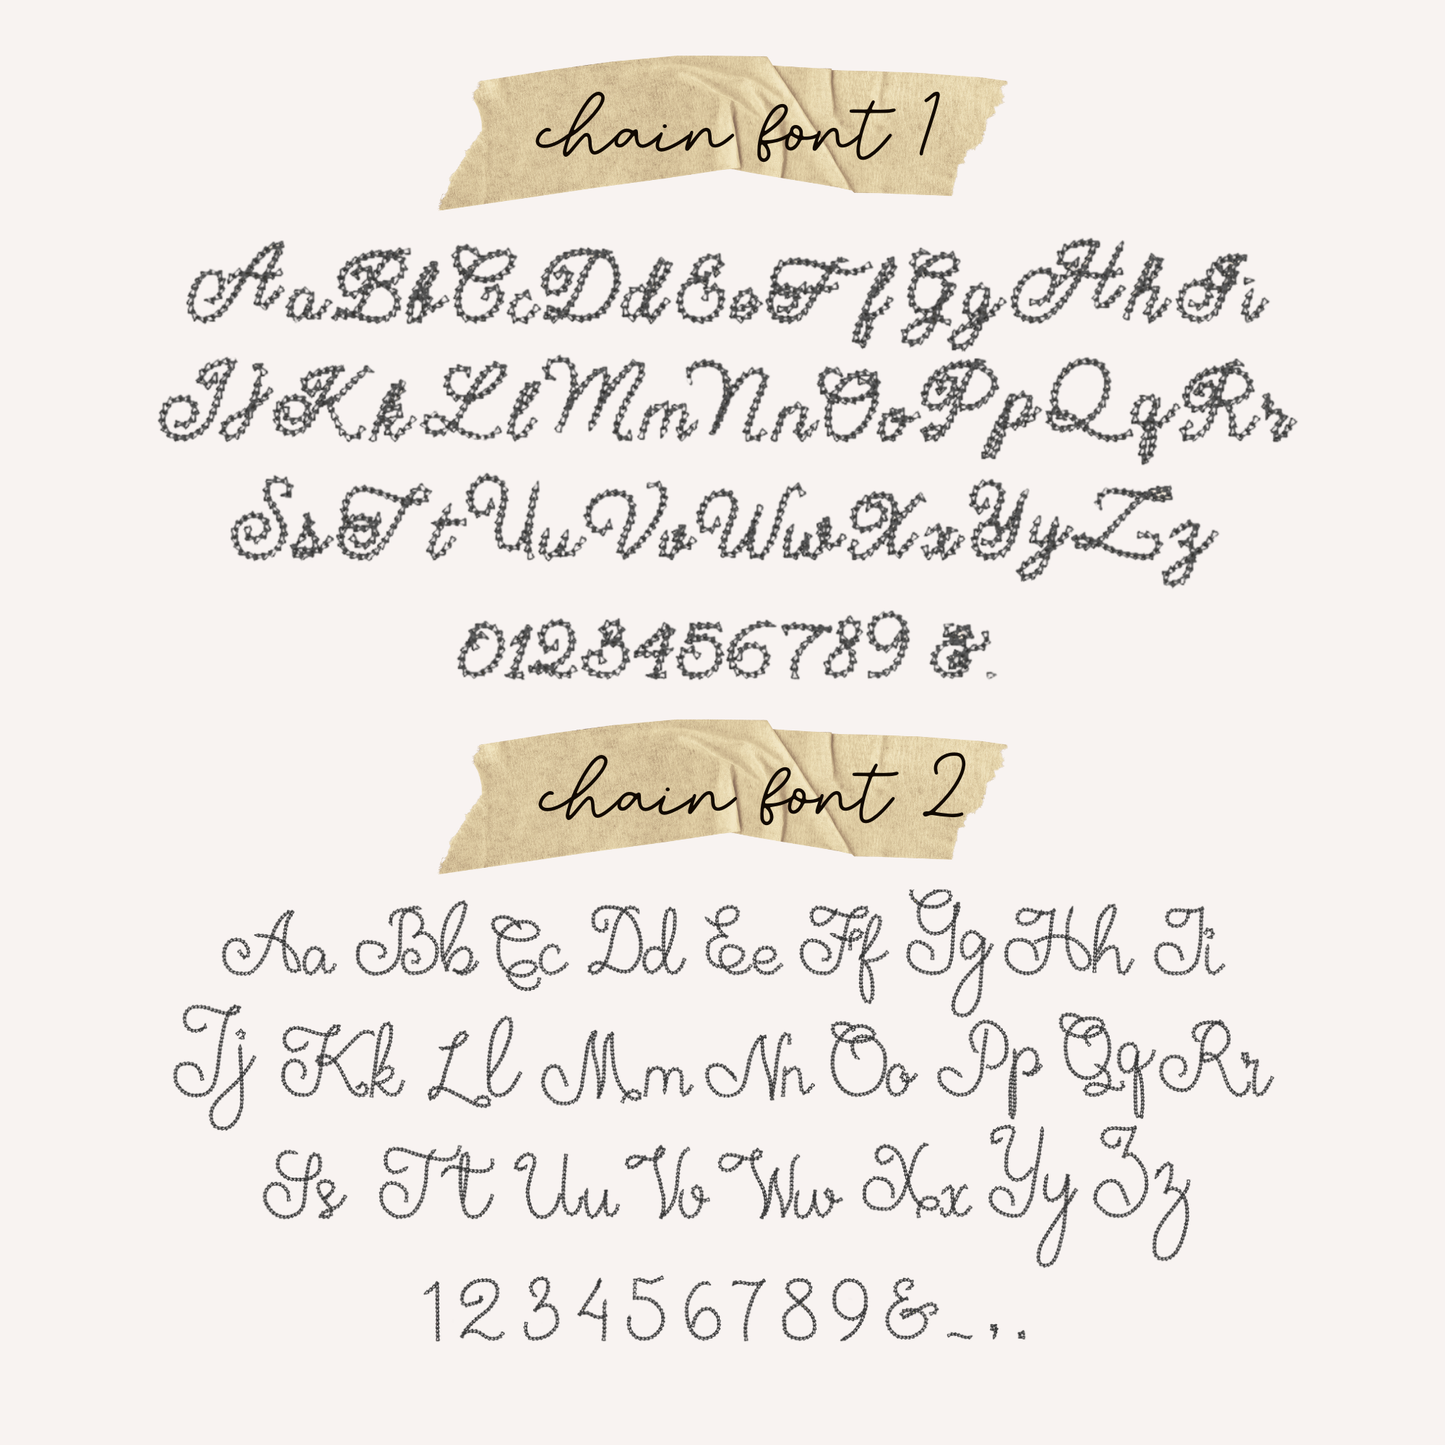 chain font 1
AaBbCcDdEeFfGgHhIi
JjKkLlMmNnOoPpQqRr
SsTtUuVvWwXxYyZz
0123456789 &.
chain font 2
Aa Bb Cc Dd Ee Ff Gg Hh Ii
Jj Kk Ll Mm Nn Oo Pp Qq Rr
Ss Tt Uu Vv Ww Xx Yy Zz
123456789&~,.